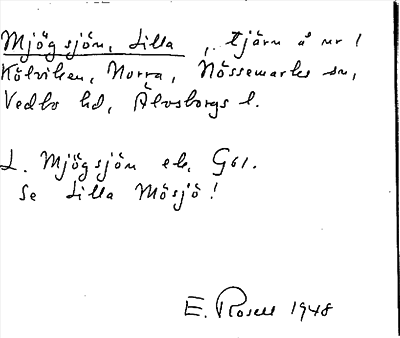 Mjögsjön, Lilla, tjärn å nr 1
Kölviken, Norra, Nössemarks sn,
Vedbo hd, Älvsborgs l.
L. Mjögsjön ek. G61.
Se Lilla Mösjö!
E. Rosell 1948